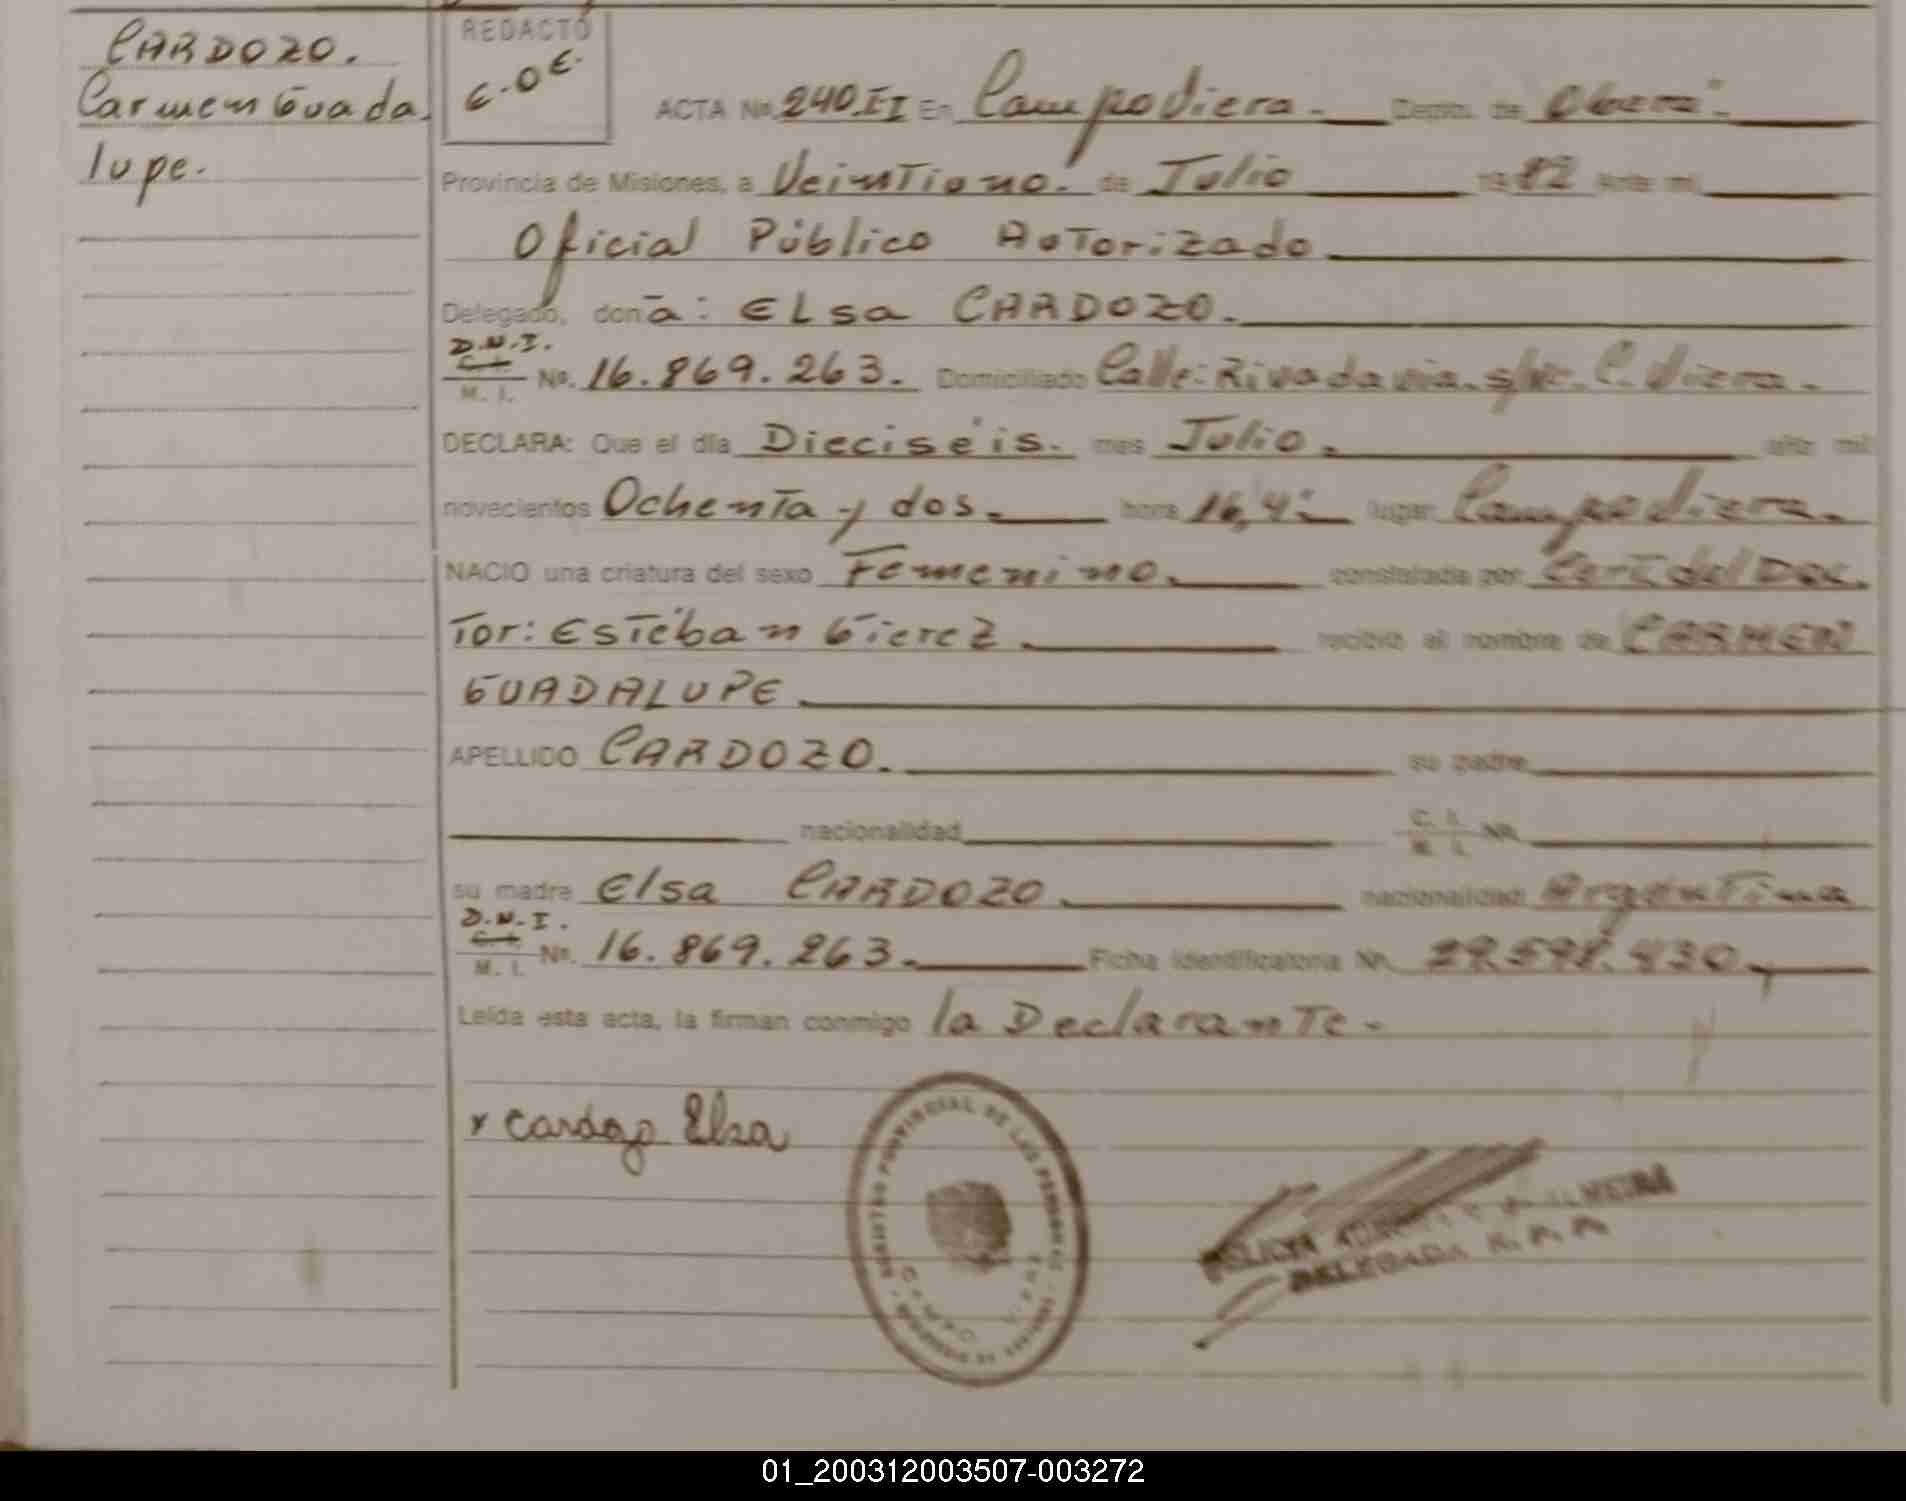 CARDOZO.
Carmen Guada
lupe.
REDACTÓ
E.O.E.
ACTA No. 240.II En Campo Viera. Depto. de Oberá.
Provincia de Misiones, a Veintiuno. de Julio 1982 Ante mí
Oficial Público Autorizado
Delegado, doña: ELSA CARDOZO.
D.N.I.
C.I.
M. I. No. 16.869.263. Domiciliado Calle: Rivadavia. s/nº. C. Viera.
DECLARA: Que el día Dieciséis. mes Julio. año mil
novecientos Ochenta y dos. hora lugar Campo Viera.
NACIO una criatura del sexo Femenino. constatada por Cert. del Doc.
Tor: Estéban recibió el nombre de CARMEN
GUADALUPE
APELLIDO CARDOZO. su padre
nacionalidad C. I.
M. I. No.
su madre Elsa CARDOZO nacionalidad Argentina
D.N.I.
C.I.
M. I. No. 16.869.263. Ficha identificatoria No. 29.598.430
Leída esta acta, la firman conmigo la Declarante.
x Cardozo Elsa
REGISTRO PROVINCIAL DE LAS PERSONAS
CAMPO VIERA
DELEGADA
01_200312003507-003272